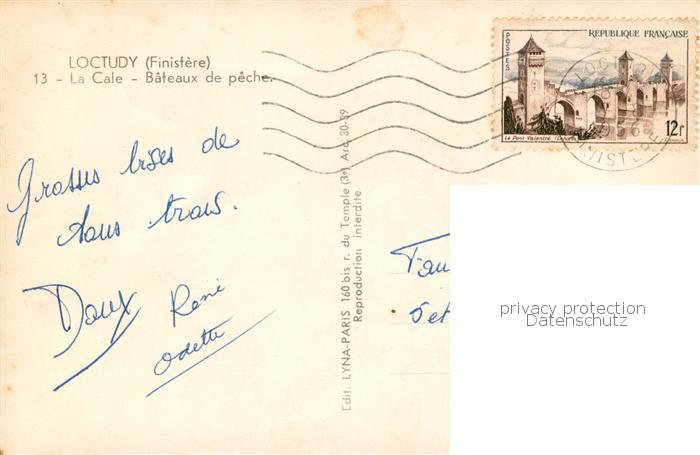 LOCTUDY (Finistère)
13 - La Cale - Bâteaux de pêche.
Grosses bises de
tous trois.
Doux René
Odette
Edit. LYNA-PARIS 160 bis r. du Temple (3e) Arc 30-09
Reproduction interdite
POSTES
REPUBLIQUE FRANÇAISE
12F
Le Pont Valentré (Cahors)
LOCTUDY
FINISTERE
privacy protection
Datenschutz